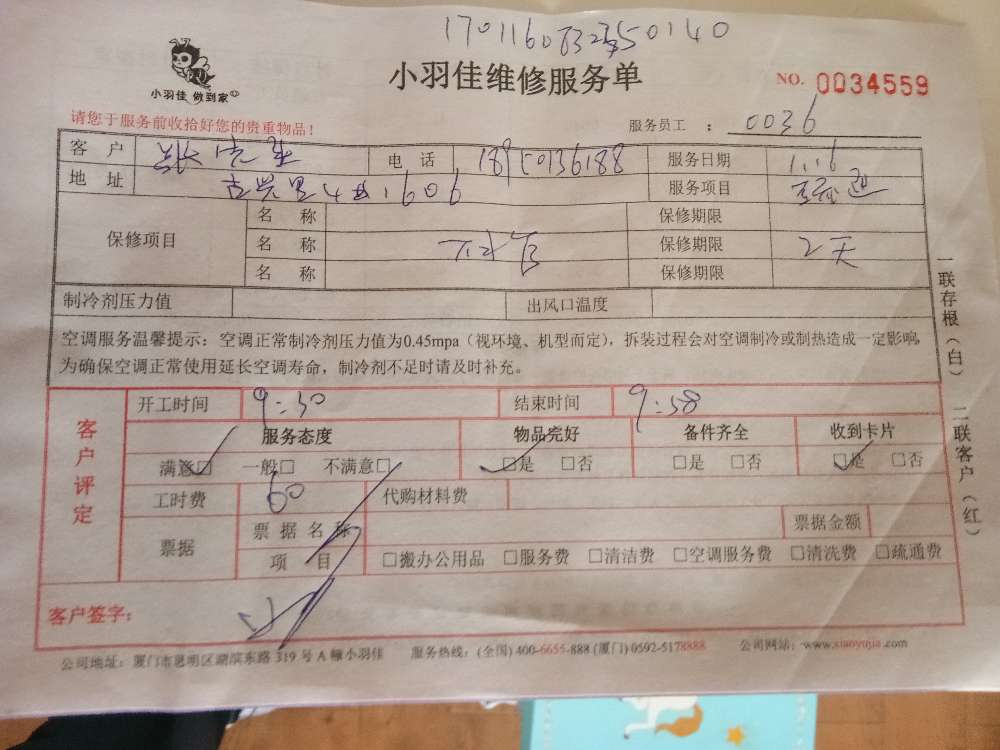 小羽佳 做到家
小羽佳维修服务单
NO. 0034559
请您于服务前收拾好您的贵重物品！
服务员工 ： 0036
客 户 电 话 服务日期 1.16
地 址 1606 服务项目
保修项目 名 称 保修期限
名 称 保修期限 2天
名 称 保修期限
制冷剂压力值 出风口温度
空调服务温馨提示：空调正常制冷剂压力值为0.45mpa（视环境、机型而定），拆装过程会对空调制冷或制热造成一定影响，
为确保空调正常使用延长空调寿命，制冷剂不足时请及时补充。
客户评定
开工时间 9:30 结束时间 9:58
服务态度 物品完好 备件齐全 收到卡片
满意□ 一般□ 不满意□ □是 □否 □是 □否 □是 □否
工时费 60 代购材料费
票据 票据名称 票据金额
项 目 □搬办公用品 □服务费 □清洁费 □空调服务费 □清洗费 □疏通费
客户签字：
公司地址：厦门市思明区湖滨东路 319 号 A 幢小羽佳 服务热线：(全国) 400-6655-888 (厦门) 0592-5178888 公司网站：www.xiaoyujia.com
一联存根（白） 二联客户（红）